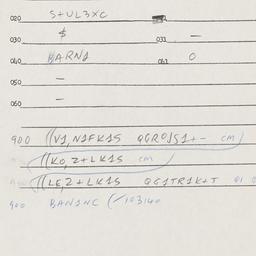 020 S+UL3XC
030 $ 031 —
040 BARN1 041 0
050 —
060 —
900 ((V1,N1FK1S QGRO1S1+- cm)
((KO,Z+LK1S cm
((LE,Z+LK1S QG1TR1K+T
900 BAN1NC (/103140